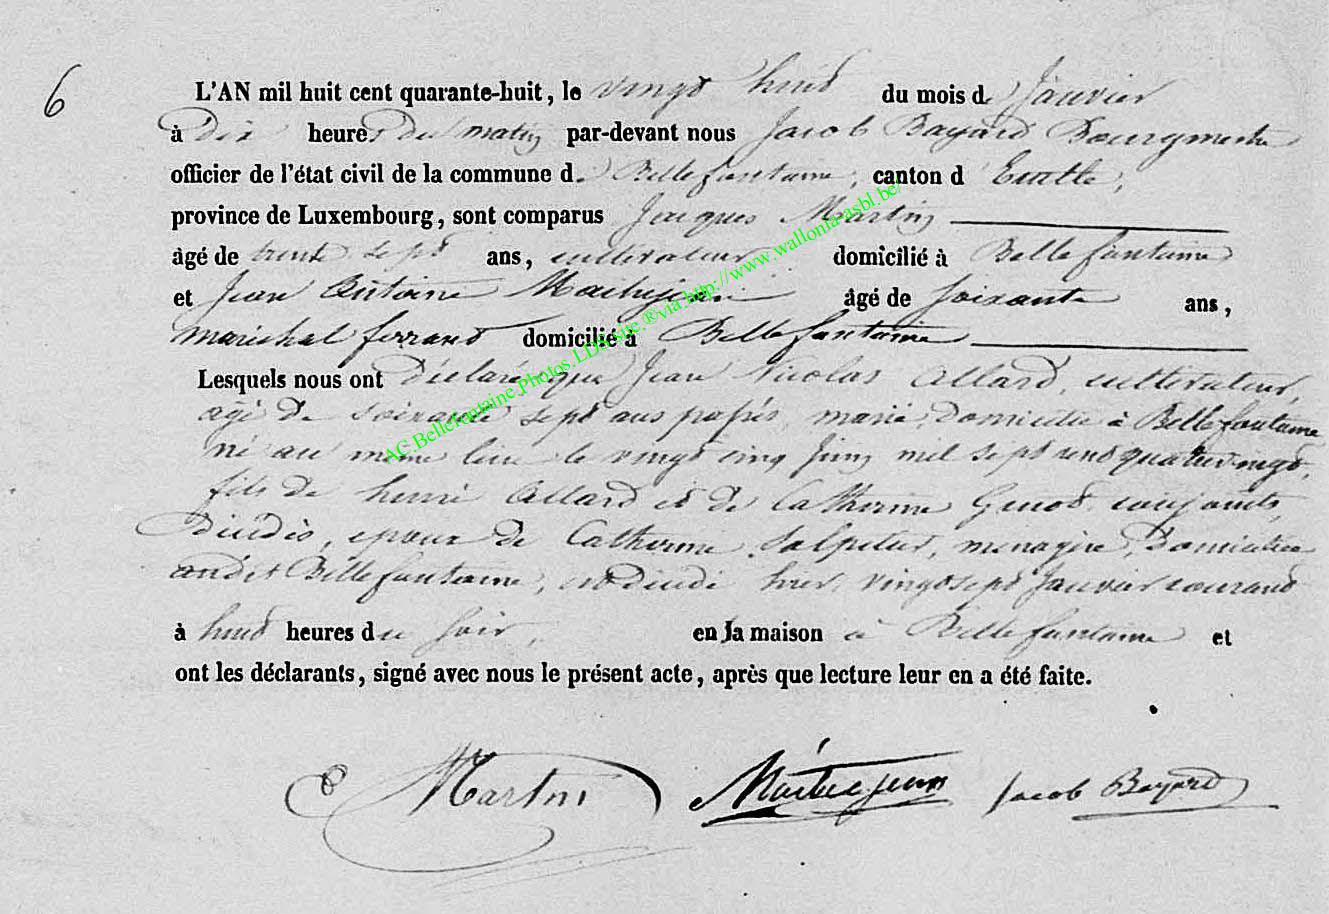 6
L'AN mil huit cent quarante-huit, le vingt huit du mois de Janvier
à Dix heures du matin par-devant nous Jacob Bayard Bourgmestre
officier de l'état civil de la commune de Bellefontaine, canton d' Etalle,
province de Luxembourg, sont comparus Jacques Martin
âgé de trente sept ans, cultivateur domicilié à Bellefontaine
et Jean Antoine Maitrejean âgé de soixante ans,
maréchal ferrand domicilié à Bellefontaine
Lesquels nous ont déclaré que Jean Nicolas Allard, cultivateur,
agé de soixante sept ans passés, marié, domicilié à Bellefontaine
né au même lieu le vingt cinq Juin mil sept cent quatre vingt,
fils de henri Allard et de Catherine conjoints,
Décédés, epoux de Catherine Salpeteur, menagère, Domiciliée
audit Bellefontaine, est décédé hier vingt sept Janvier courant
à huit heures du soir, en sa maison à Bellefontaine et
ont les déclarants, signé avec nous le présent acte, après que lecture leur en a été faite.
Martin Maitrejean Jacob Bayard
AC.Bellefontaine.Photos.LDS.site.®via http://www.wallonia-asbl.be/